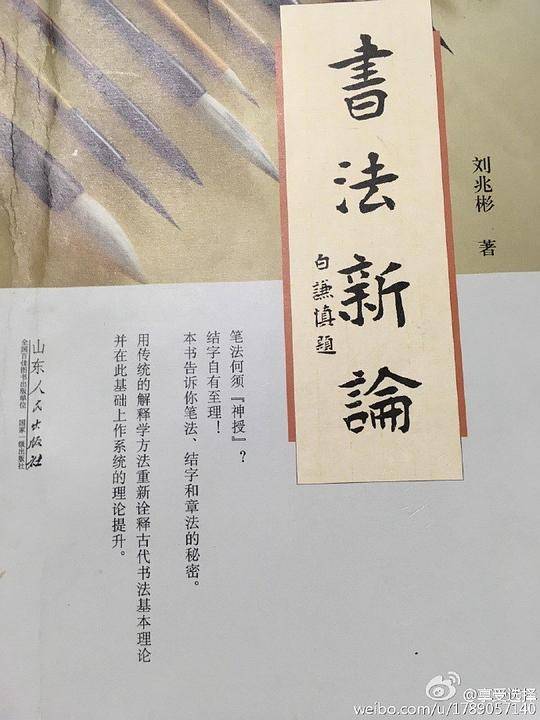 書法新論
白謙慎題
刘兆彬 著
笔法何须『神授』？
结字自有至理！
本书告诉你笔法、结字和章法的秘密。
用传统的解释学方法重新诠释古代书法基本理论
并在此基础上作系统的理论提升。
山东人民出版社
全国百佳图书出版单位 国家一级出版社
@享受选择
weibo.com/u/1789057140